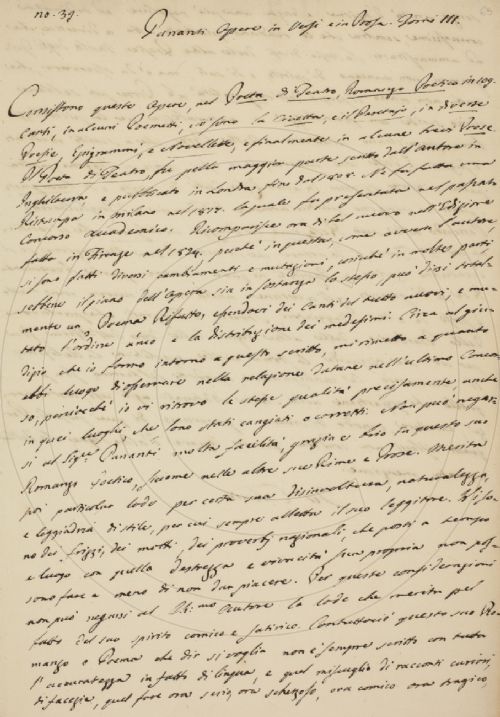 no. 39.
Pananti Opere in Versi e in Prosa. Tomi III.
Consistono queste Opere, nel Poeta di Teatro, Romanzo Poetico in 109.
Canti, in alcuni Poemetti, ciò sono la Civetta, e il Paretajo, in diverse
Poesie, Epigrammi, e Novellette, e finalmente in alcune brevi Prose.
Il Poeta di Teatro, fu nella maggior parte scritto dall'Autore in
Inghilterra e pubblicato in Londra fino dal 1808. Ne fu fatta una
Ristampa in Milano nel 1817. la quale fu presentata nel passato
Concorso Accademico. Ricomparisce ora di bel nuovo nell'Edizione
fatta in Firenze nel 1824. perchè in questa, come avverte l'autore,
si sono fatti diversi cambiamenti e mutazioni, cosichè in molte parti
sebbene il piano dell'Opera sia in sostanza lo stesso, può dirsi total-
mente un Poema Rifatto, essendovi dei Canti del tutto nuovi, e mu-
tato l'ordine e la distribuzione dei medesimi. Circa al giu-
dizio che io formo intorno a questi scritti, mi rimetto a quanto
ebbi luogo di osservare nella relazione datane nell'ultimo Concor-
so, perciocchè io vi ritrovo le stesse qualità precisamente anche
in quei luoghi, che sono stati cangiati o corretti. Non può negar-
si al Sigr. Pananti molta facilità grazia e brio in questo suo
Romanzo Poetico, siccome nelle altre sue Rime e Prose. Merita
poi particolar lode per certa sua disinvoltura, naturalezza,
e leggiadria di stile, per cui sempre alletta il suo leggitore. Vi so-
no dei frizzi, dei motti, dei proverbj nazionali, che posti a tempo
e luogo con quella destrezza e vivacità sua propria non pos-
sono fare a meno di non dar piacere. Per queste considerazioni
non può negarsi al Autore la lode che merita pel
fatto del suo spirito comico e satirico. Contuttociò questo suo Ro-
manzo o Poema che dir si voglia non è sempre scritto con tutta
l'accuratezza in fatto di lingua, e quel miscuglio di racconti curiosi,
di facezie, quel fare ora serio, ora scherzoso, ora comico ora tragico,